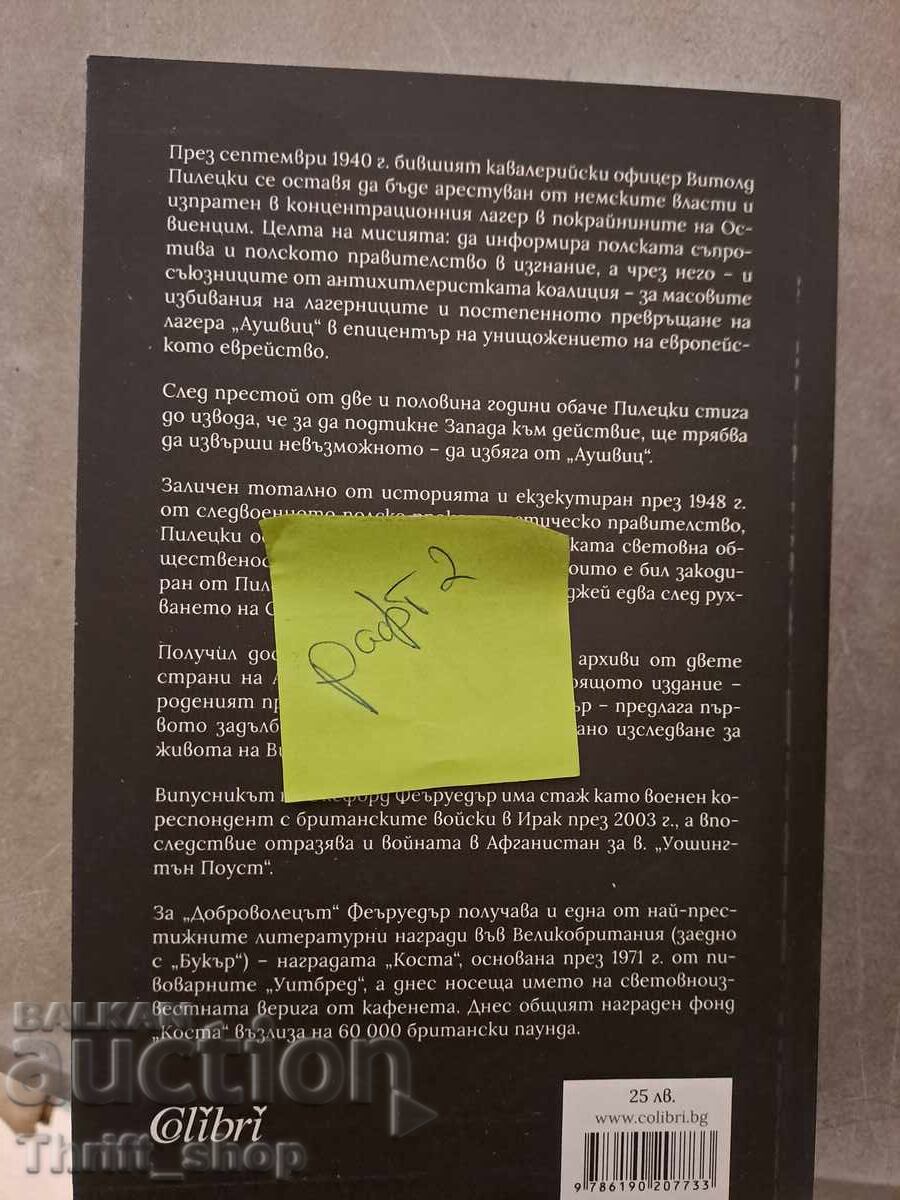 През септември 1940 г. бившият кавалерийски офицер Витолд
Пилецки се оставя да бъде арестуван от немските власти и
изпратен в концентрационния лагер в покрайнините на Ос-
виенцим. Целта на мисията: да информира полската съпро-
тива и полското правителство в изгнание, а чрез него – и
съюзниците от антихитлеристката коалиция – за масовите
избивания на лагерниците и постепенното превръщане на
лагера „Аушвиц“ в епицентър на унищожението на европейс-
кото еврейство.
След престой от две и половина години обаче Пилецки стига
до извода, че за да подтикне Запада към действие, ще трябва
да извърши невъзможното – да избяга от „Аушвиц“.
Заличен тотално от историята и екзекутиран през 1948 г.
от следвоенното полско правителство,
Пилецки ката световна об-
щественос оито е бил закоди-
ран от Пил джей едва след рух-
ването на С
Получил дос архиви от двете
страни на А оящото издание –
роденият пр ър – предлага пър-
вото задълб ано изследване за
живота на Ви
рафт 2
Випусникът Феъруедър има стаж като военен ко-
респондент с британските войски в Ирак през 2003 г., а впо-
следствие отразява и войната в Афганистан за в. „Уошинг-
тън Поуст“.
За „Доброволецът“ Феъруедър получава и една от най-прес-
тижните литературни награди във Великобритания (заедно
с „Букър“) – наградата „Коста“, основана през 1971 г. от пи-
воварните „Уитбред“, а днес носеща името на световноиз-
вестната верига от кафенета. Днес общият награден фонд
„Коста“ възлиза на 60 000 британски паунда.
BALKAN
auction
Colibri
Thrift_shop
25 лв.
www.colibri.bg
9 786190 207733